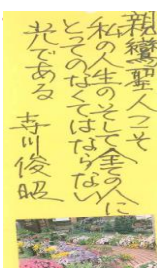 親鸞聖人こそ
私の人生のそして全の人に
とってのなくてはならない
光である
寺川俊昭